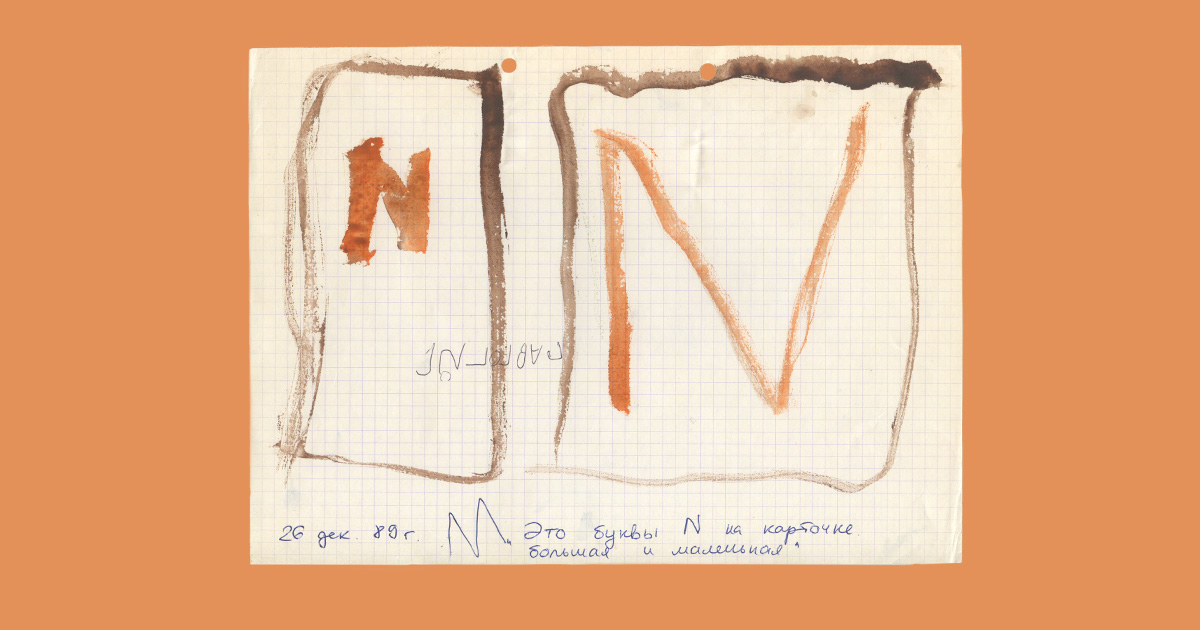 N N
26 дек. 89 г. М „Это буквы N на карточке.
большая и маленькая"